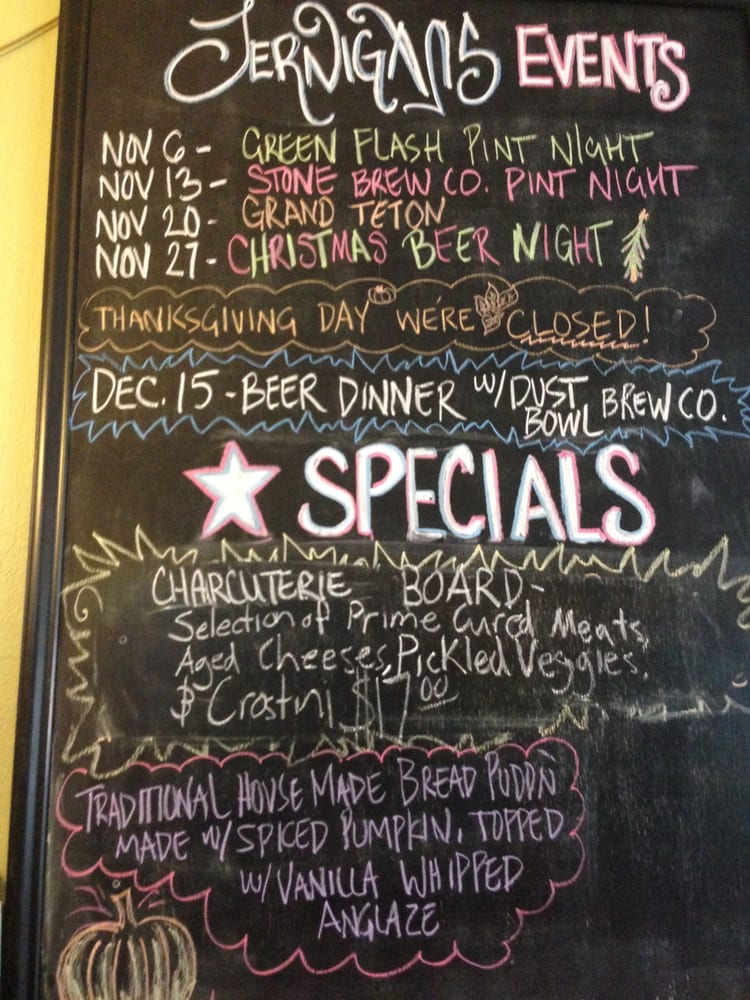 JERNIGANS EVENTS
NOV 6 - GREEN FLASH PINT NIGHT
NOV 13 - STONE BREW CO. PINT NIGHT
NOV 20 - GRAND TETON
NOV 27 - CHRISTMAS BEER NIGHT
THANKSGIVING DAY WE'RE CLOSED!
DEC. 15 - BEER DINNER W/ DUST BOWL BREW CO.
SPECIALS
CHARCUTERIE BOARD -
Selection of Prime Cured Meats,
Aged Cheeses, Pickled Veggies,
& Crostini $17.00
TRADITIONAL HOUSE MADE BREAD PUDDN
MADE W/ SPICED PUMPKIN, TOPPED
W/ VANILLA WHIPPED
ANGLAZE